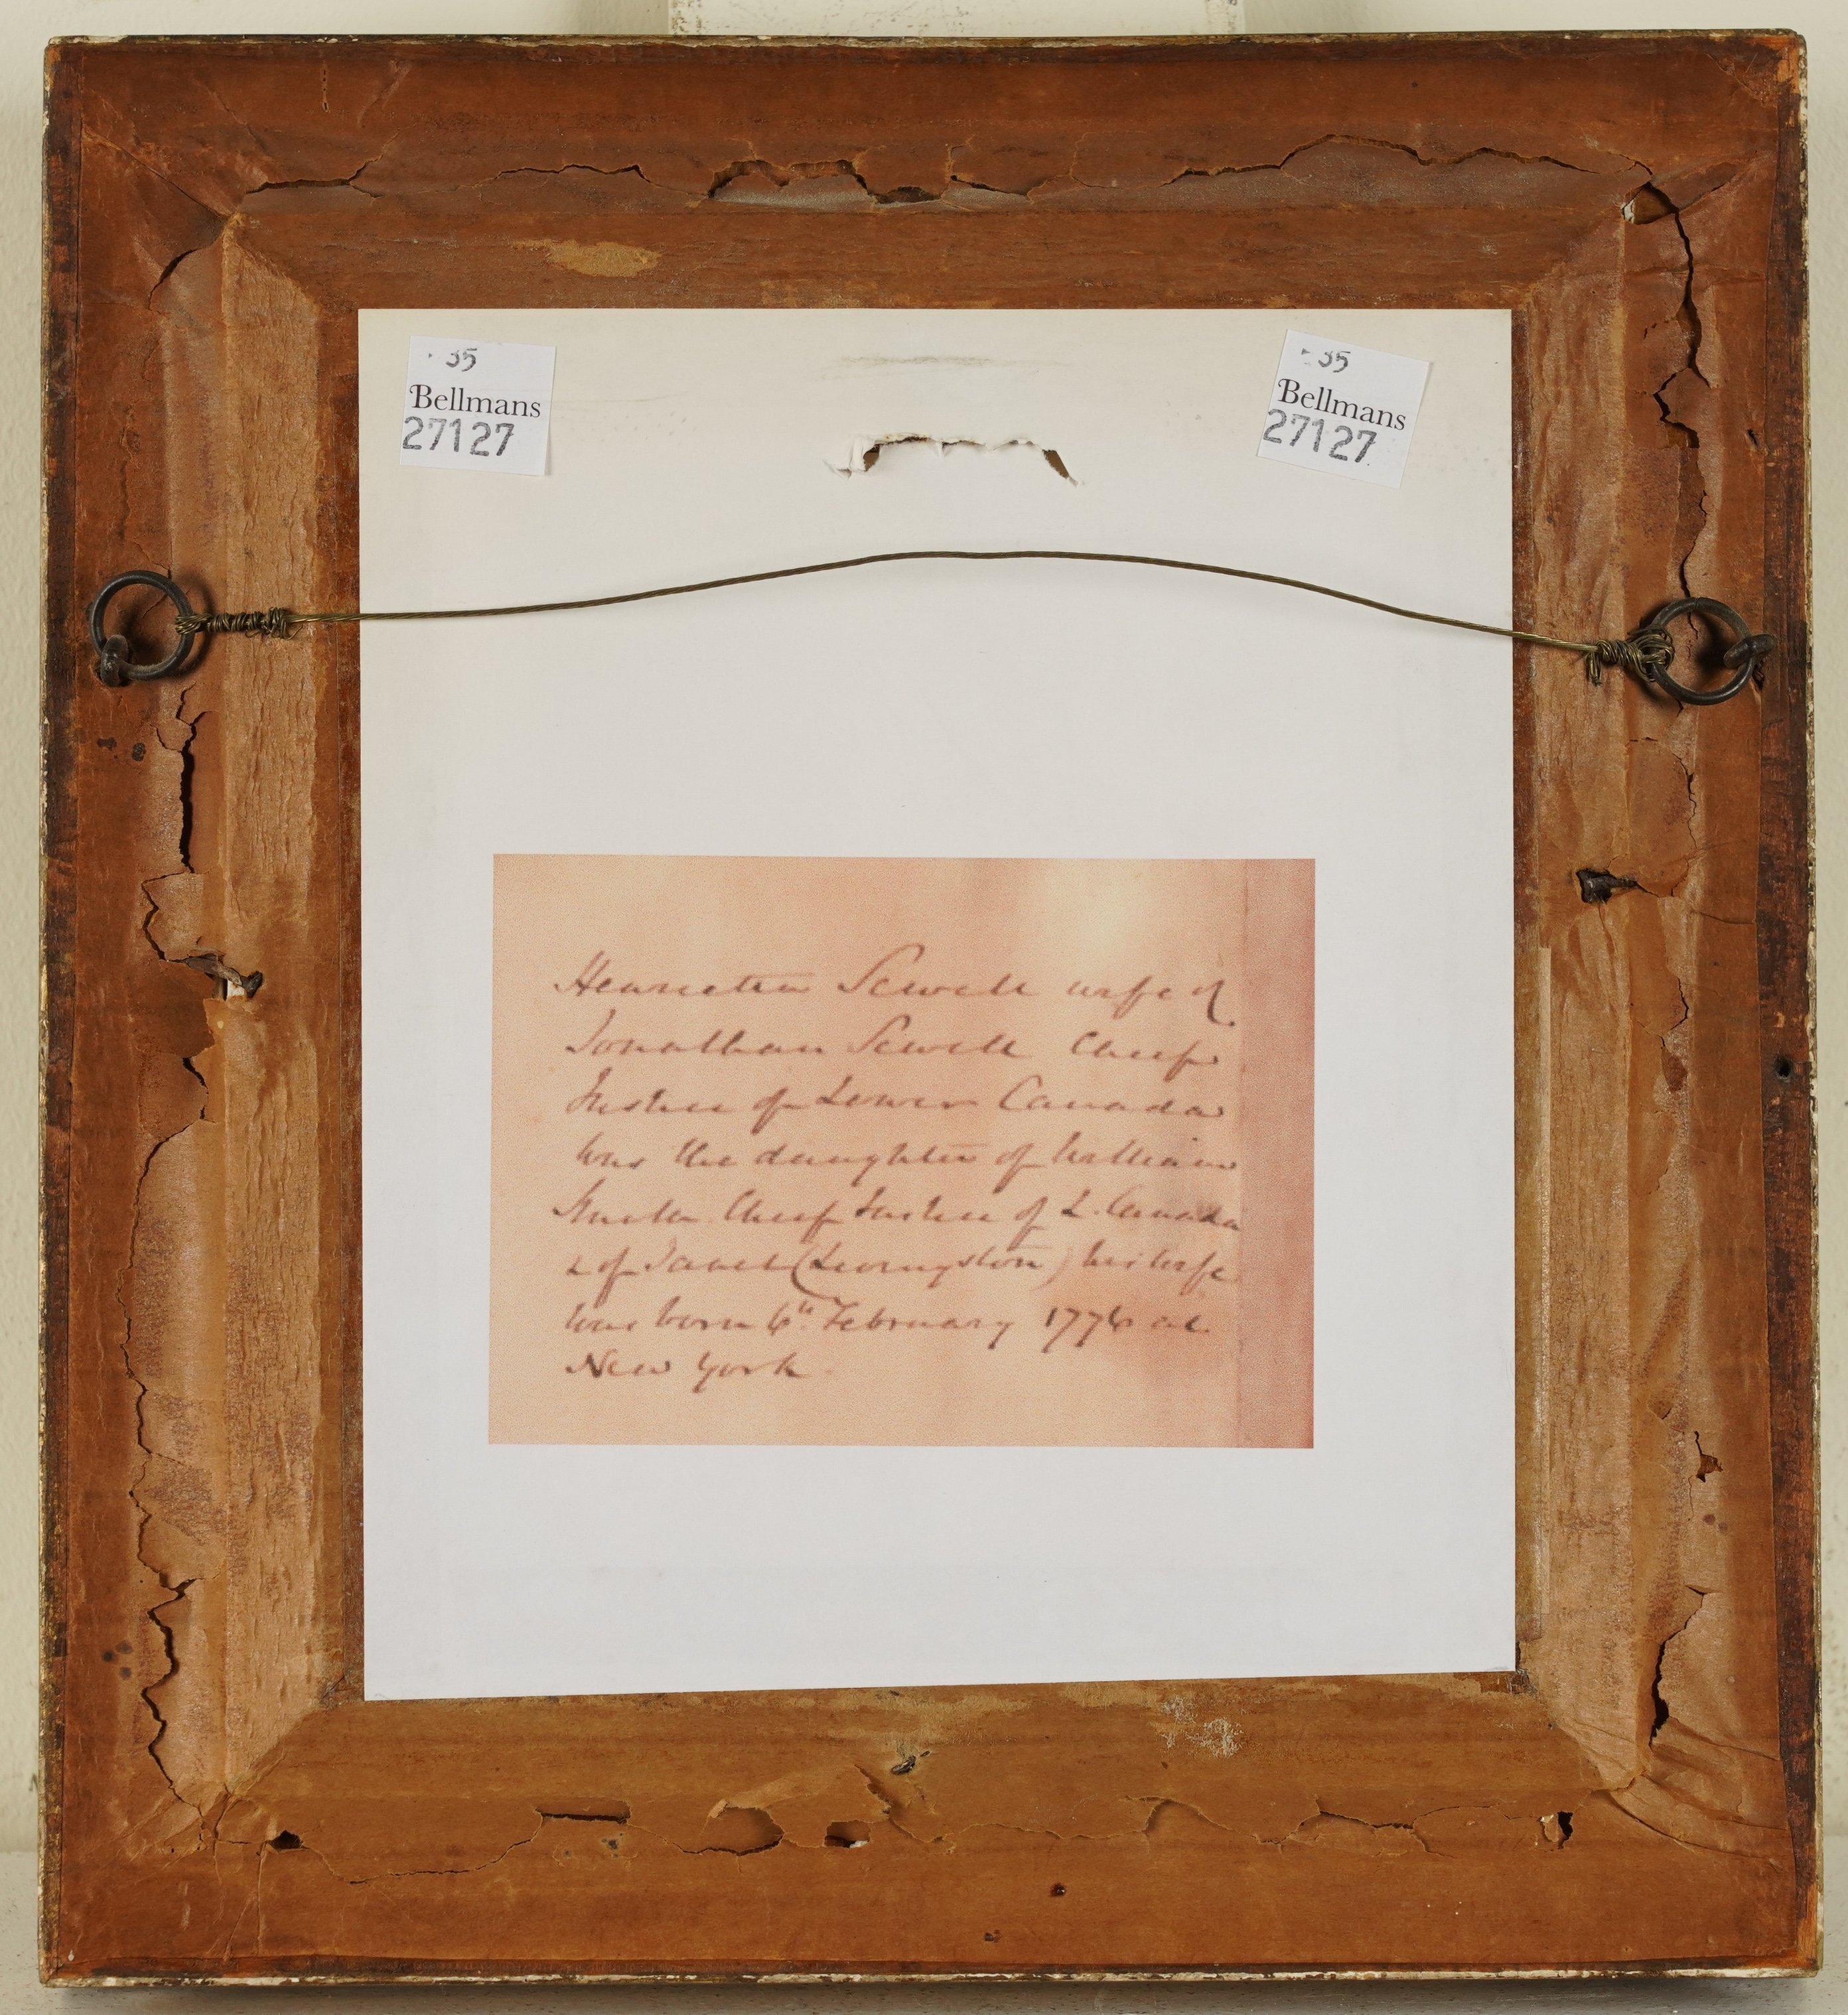 35
Bellmans
27127
35
Bellmans
27127
Henrietta Sewell wife of
Jonathan Sewell Chief
Justice of Lower Canada
was the daughter of William
Smith Chief Justice of L. Canada
& of Janet (Livingston) his wife
was born 6th February 1776 at
New York